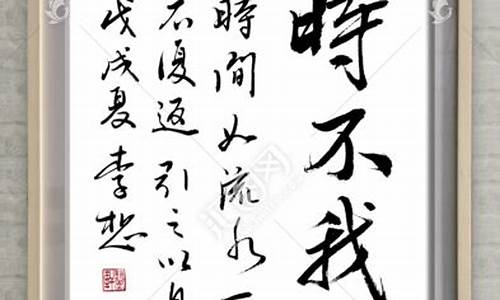 時不我
時間如流水
不復返 引之以
戊戌夏 李想